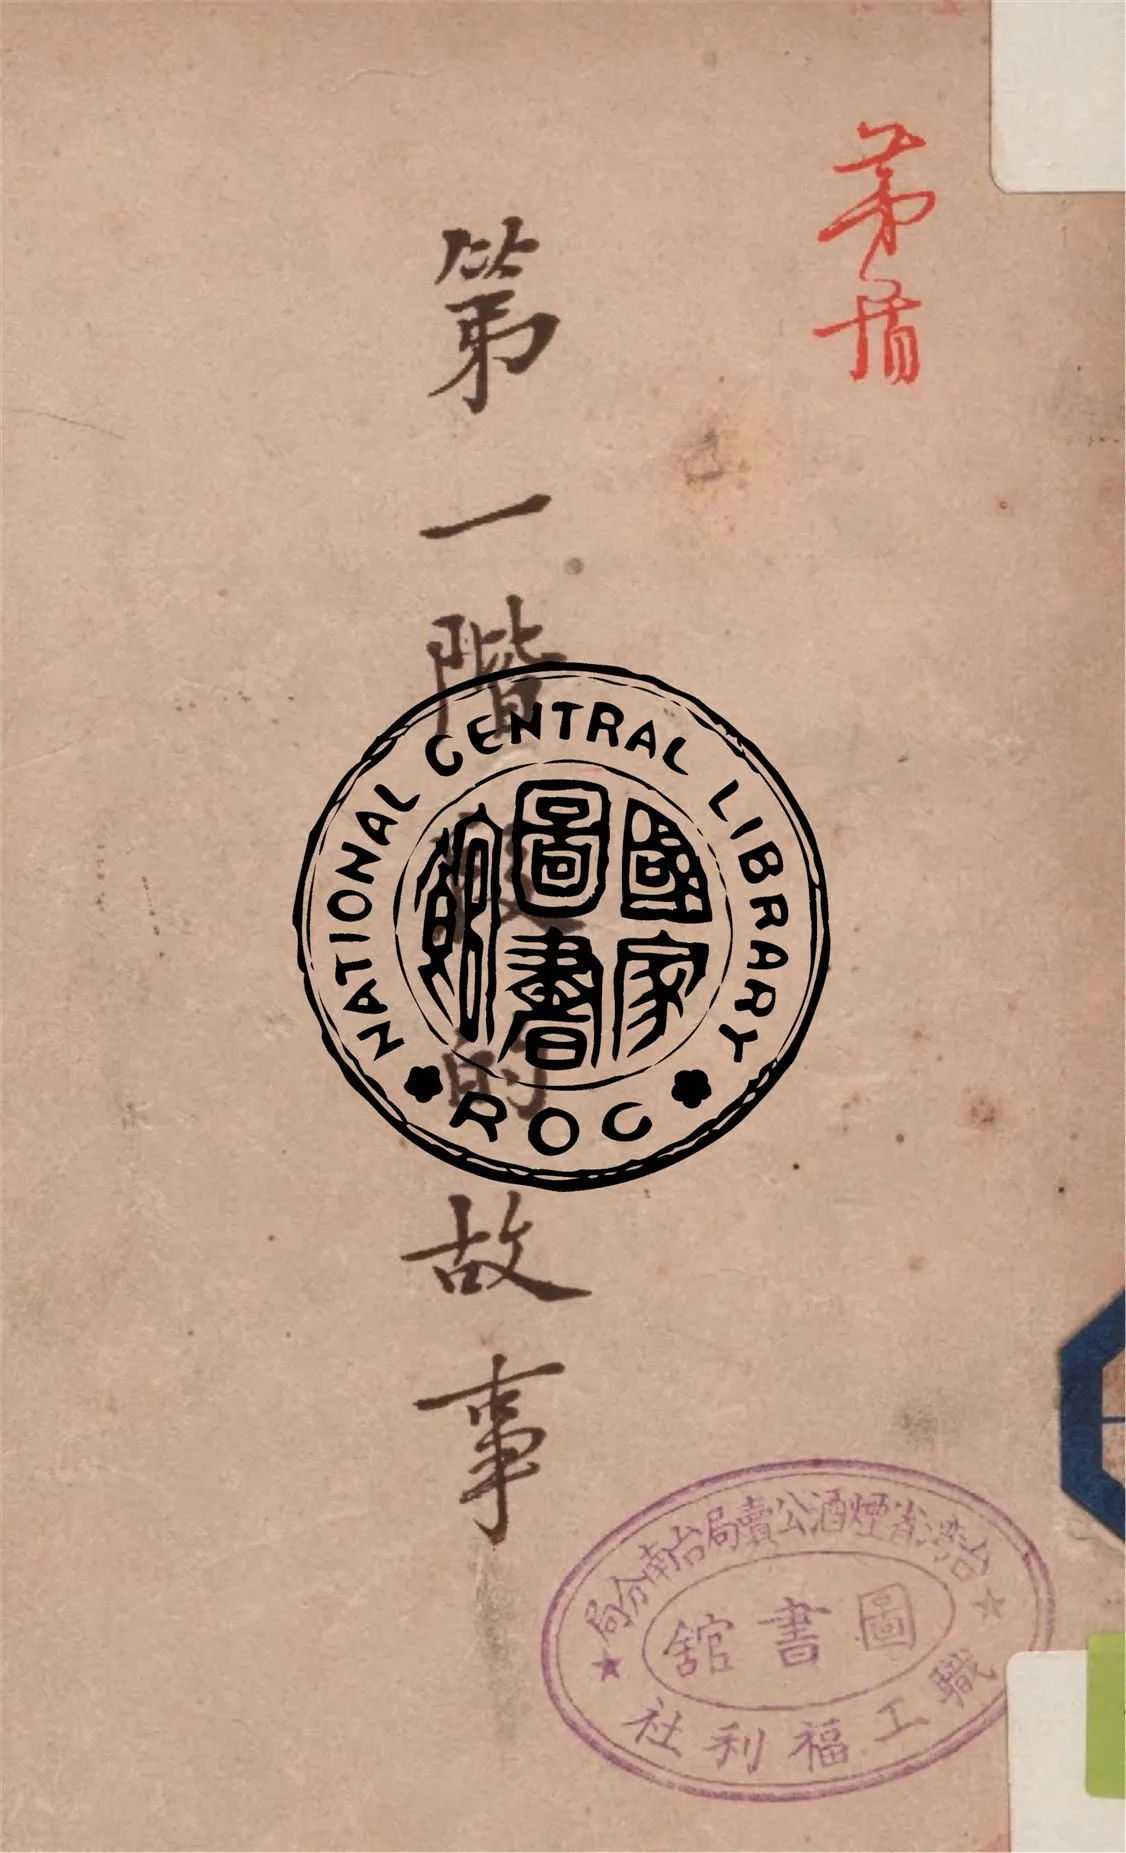 茅盾
第一階段的故事
NATIONAL CENTRAL LIBRARY
ROC
國家
圖書
館
台湾省煙酒公賣局台南分局
圖書舘
職工福利社